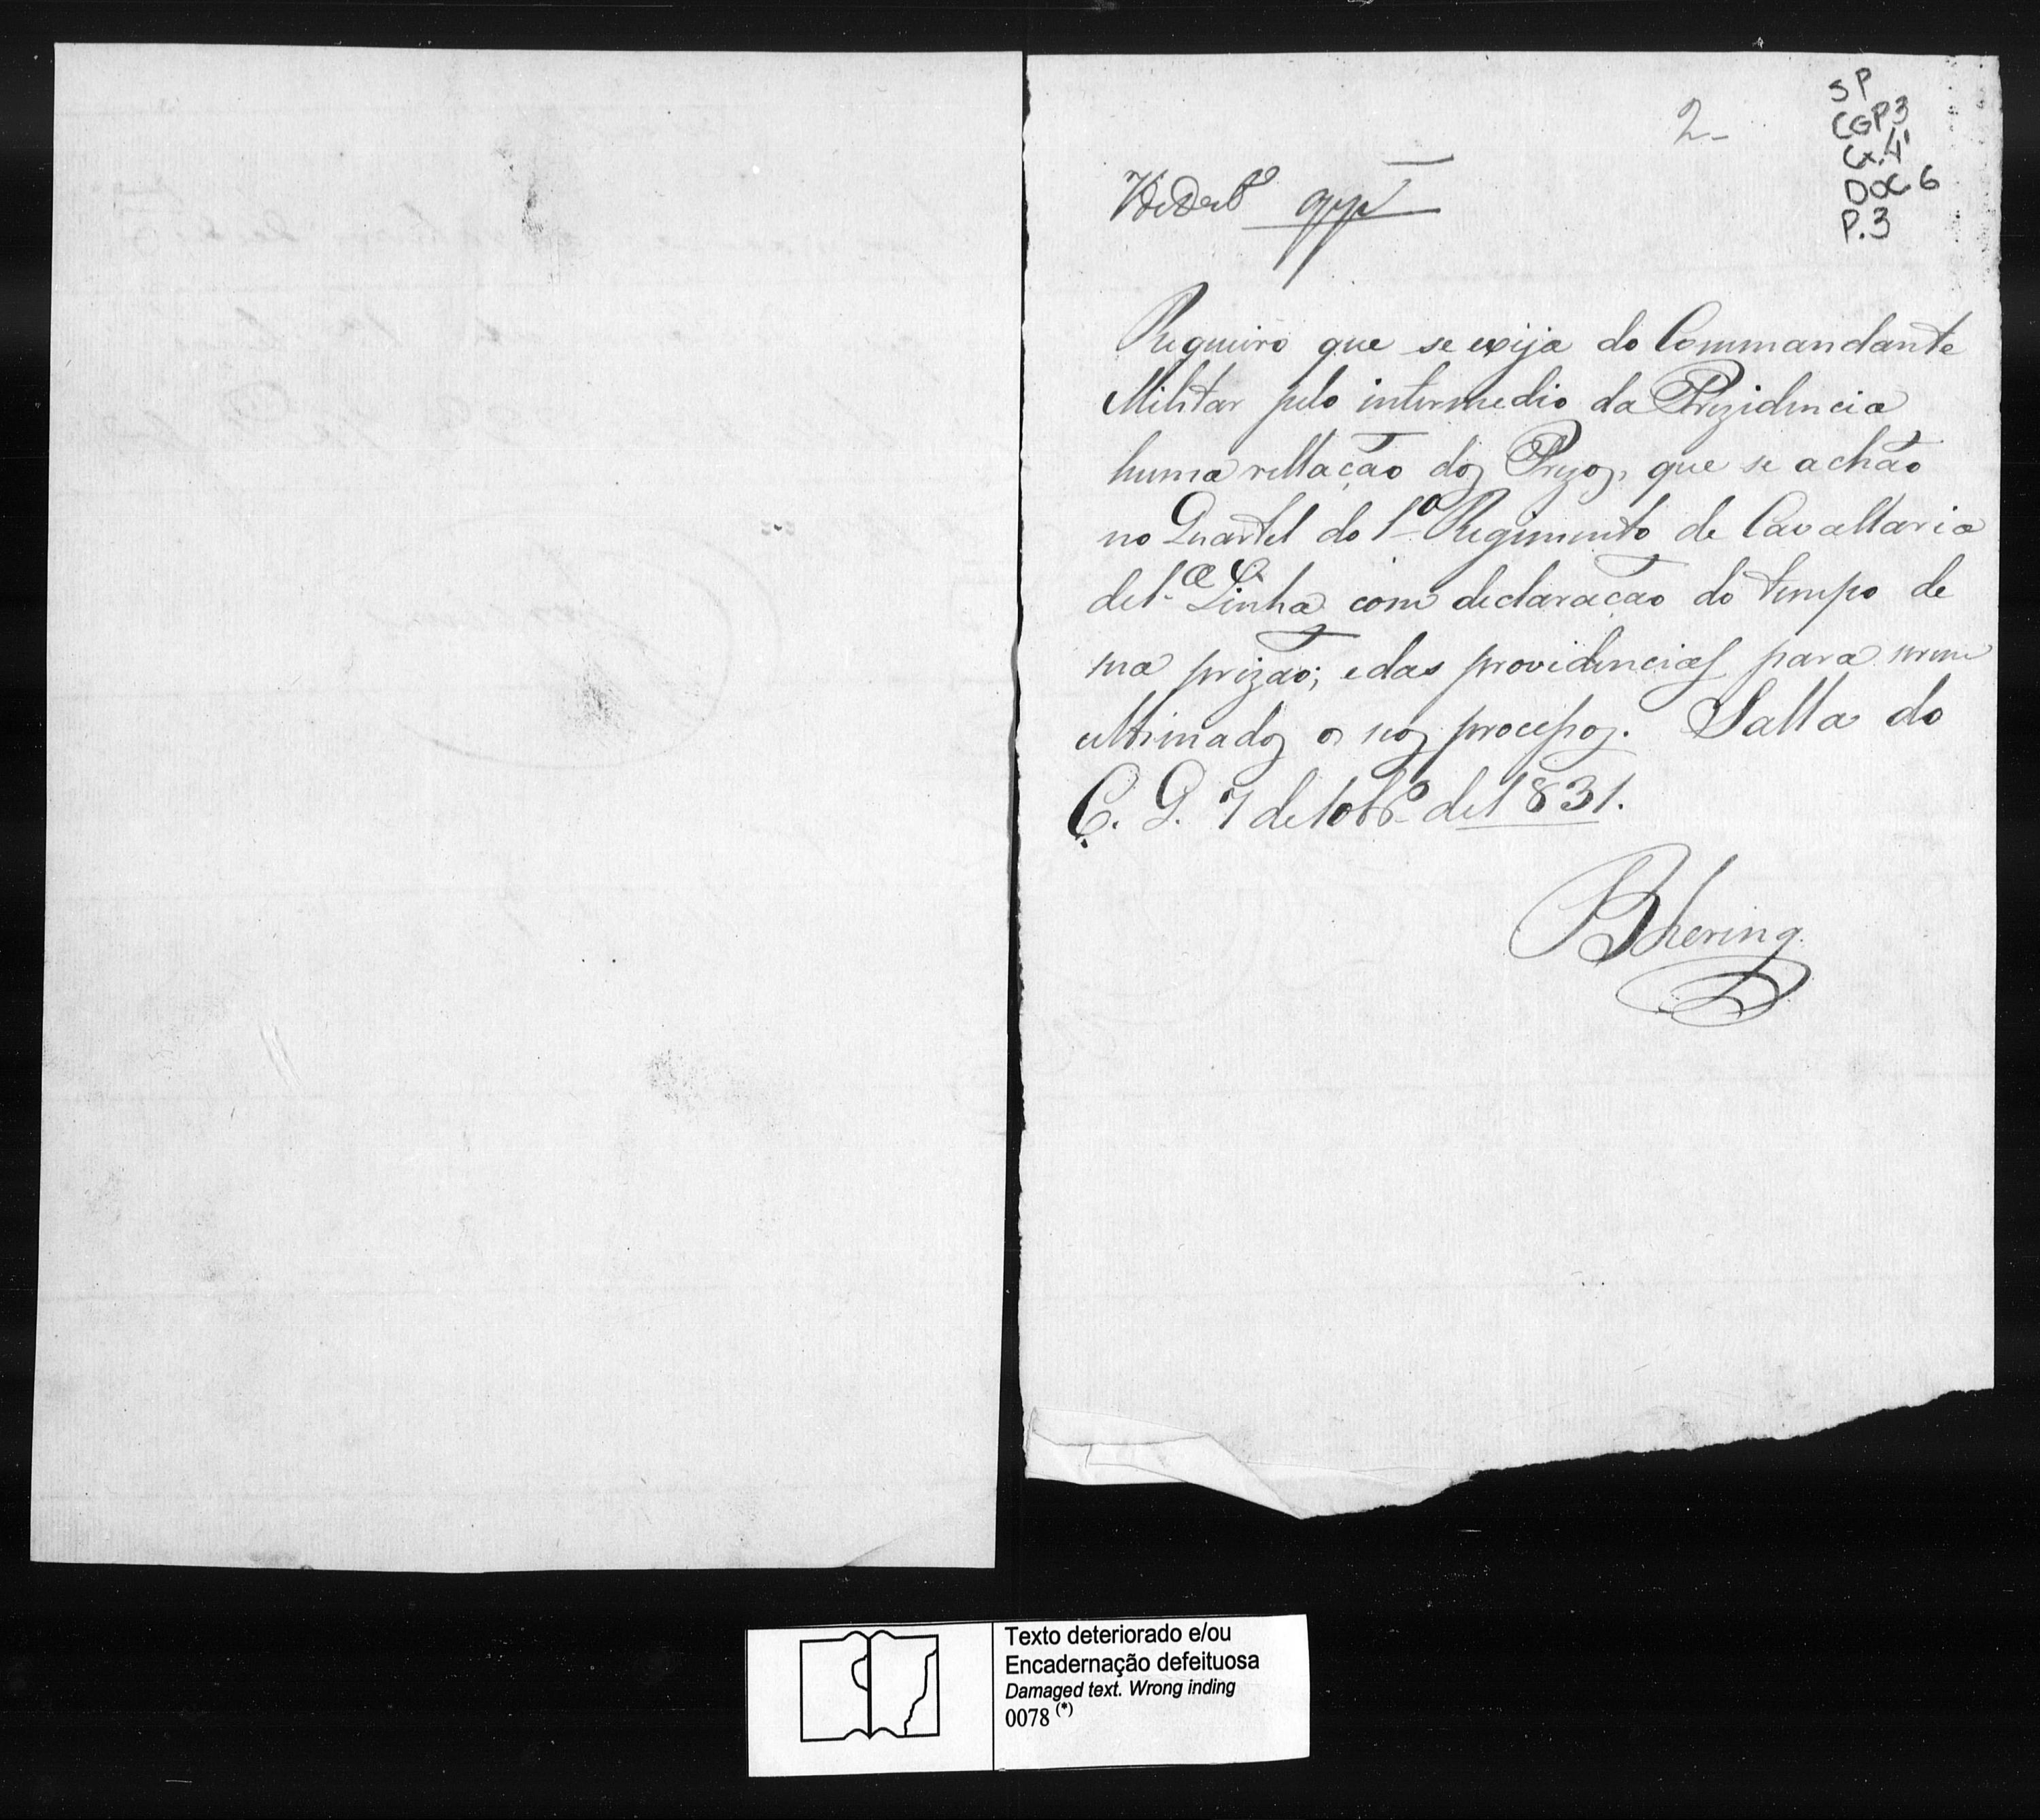 2_
SP
CGP3
Cx.4
DOC 6
P.3
7 de Dezbro app
Requeiro que se exija do Commandante
Militar pelo intermedio da Prezidencia
huma rellação dos Prezos, que se achão
no Quartel do 1º Regimento de Cavallaria
de 1.ª Linha com declaração do tempo de
sua prizão; e das providencias para serem
ultimados os seos processos. Salla do
C. G. 7 de 10bro de 1831.
Bhering.
Texto deteriorado e/ou
Encadernação defeituosa
Damaged text. Wrong inding
0078 (*)